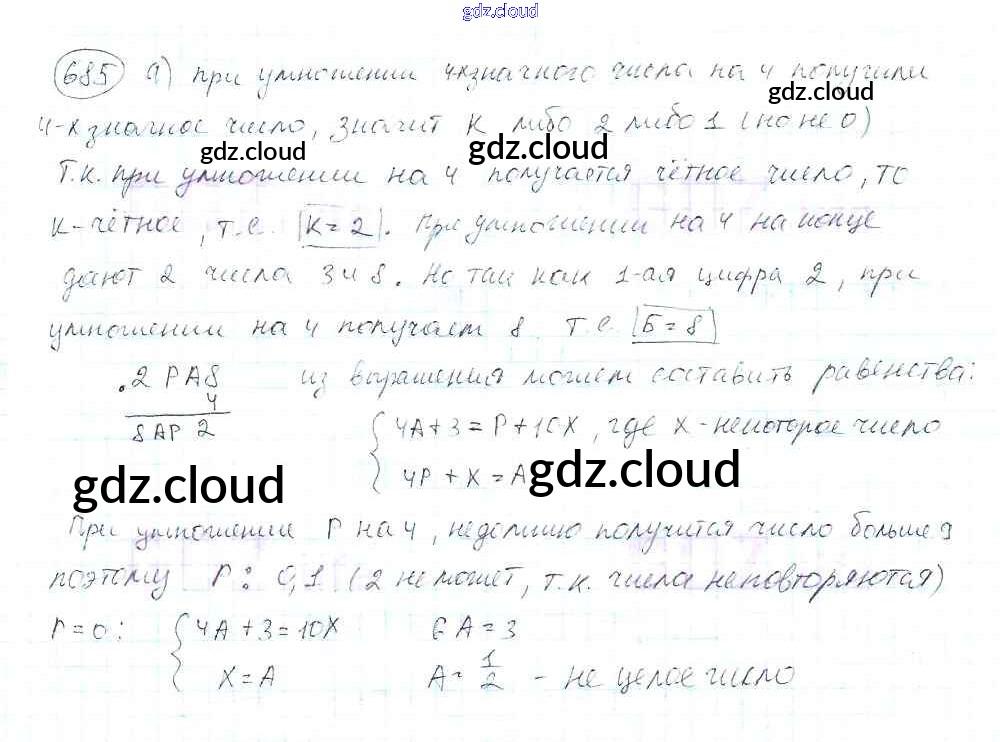 gdz.cloud
gdz.cloud
685 а) при умножении 4хзначного числа на 4 получили
gdz.cloud
4-х значное число, значит К либо 2 либо 1 (но не 0)
gdz.cloud gdz.cloud
Т.к. при умножении на 4 получается чётное число, то
К-чётное, т.е. К=2. При умножении на 4 на конце
дают 2 числа 3 и 8. Но так как 1-ая цифра 2, при
умножении на 4 получает 8 т.е. Б=8
.2РА8 из выражения можем составить равенства:
4
8АР2
4А+3=Р+10Х, где Х-некоторое число
4Р+Х=А
gdz.cloud gdz.cloud
При умножении Р на 4, недолжно получится число больше 9
поэтому Р: 0,1 (2 не может, т.к. числа неповторяются)
Р=0: 4А+3=10Х 6А=3
Х=А А=1/2 - не целое число